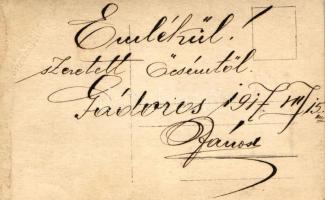 Emlékül!
szeretett Öcsémtől.
Gádoros 1917 VIII/15.
János